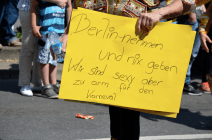 Berlin-nehmen
und nix geben
Wir sind sexy aber
zu arm für den
Karneval